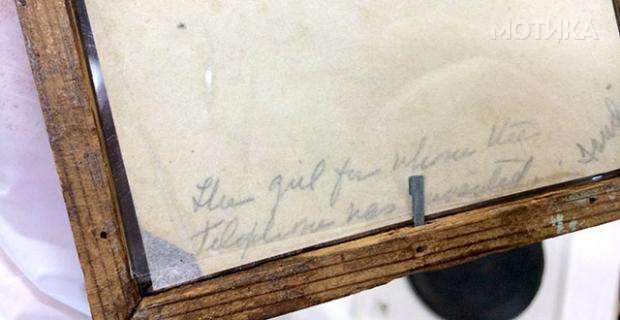 МОТИКА
The girl for whom the
telephone was invented.